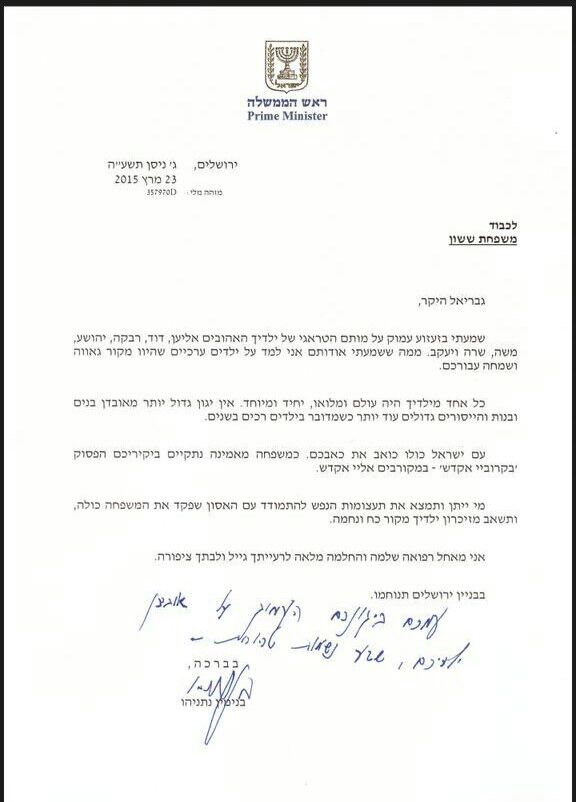 ישראל
ראש הממשלה
Prime Minister
ירושלים, ג' ניסן תשע"ה
23 מרץ 2015
מזהה מלי: 357970D
לכבוד
משפחת ששון
גבריאל היקר,
שמעתי בזעזוע עמוק על מותם הטראגי של ילדיך האהובים אליען, דוד, רבקה, יהושע,
משה, שרה ויעקב. ממה ששמעתי אודותם אני למד על ילדים ערכיים שהיוו מקור גאווה
ושמחה עבורכם.
כל אחד מילדיך היה עולם ומלואו, יחיד ומיוחד. אין יגון גדול יותר מאובדן בנים
ובנות והייסורים גדולים עוד יותר כשמדובר בילדים רכים בשנים.
עם ישראל כולו כואב את כאבכם. כמשפחה מאמינה נתקיים ביקיריכם הפסוק
'בקרוביי אקדש' - במקורבים אליי אקדש.
מי ייתן ותמצא את תעצומות הנפש להתמודד עם האסון שפקד את המשפחה כולה,
ותשאב מזיכרון ילדיך מקור כח ונחמה.
אני מאחל רפואה שלמה והחלמה מלאה לרעייתך גייל ולבתך ציפורה.
בבניין ירושלים תנוחמו.
עמכם ביגונכם העמוק על אובדן
ילדיכם, שבע נשמות טהורות -
בברכה,
בנימין נתניהו